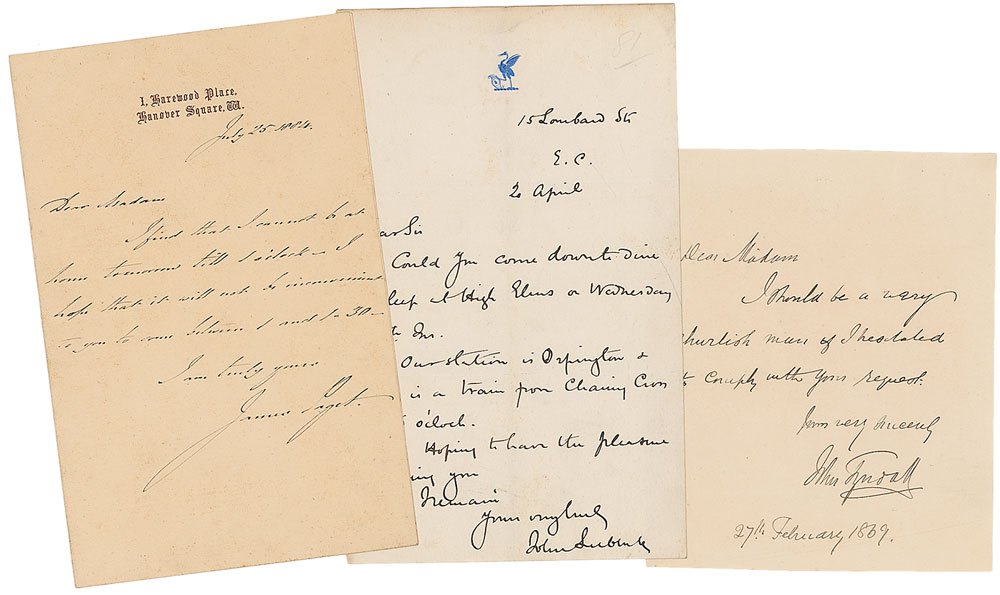 1, Harewood Place,
Hanover Square, W.
July 25. 1884.
Dear Madam
I find that I cannot be at
home tomorrow till 1 o'clock – I
hope that it will not be inconvenient
to you to come between 1 and 1.30 –
I am truly yours
James Paget.
81
15 Lombard St
E. C.
20 April
ar Sir
Could you come down to dine
leep at High Elms on Wednesday
Our station is Orpington &
is a train from Charing Cross
o'clock.
Hoping to have the pleasure
ing you
I remain
Yours very truly
John Lubbock
Dear Madam
I should be a very
churlish man if I hesitated
to comply with your request.
Yours very sincerely
John Tyndall
27th February 1869.